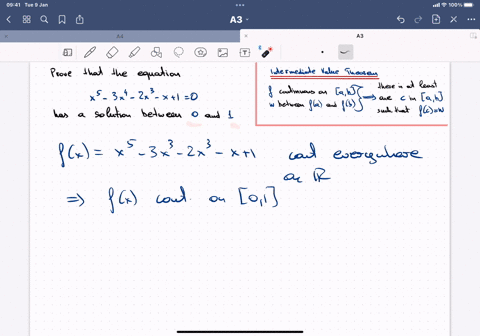 09:41 Tue 9 Jan
A3
A4
A3
Prove that the equation
x⁵ - 3x⁴ - 2x³ - x + 1 = 0
has a solution between 0 and 1
Intermediate Value Theorem
f continuous on [a,b]
w between f(a) and f(b)
⟹ there is at least
one c in [a,b]
such that f(c)=w
f(x) = x⁵ - 3x³ - 2x³ - x + 1 cont everywhere
on ℝ
⟹ f(x) cont. on [0,1]